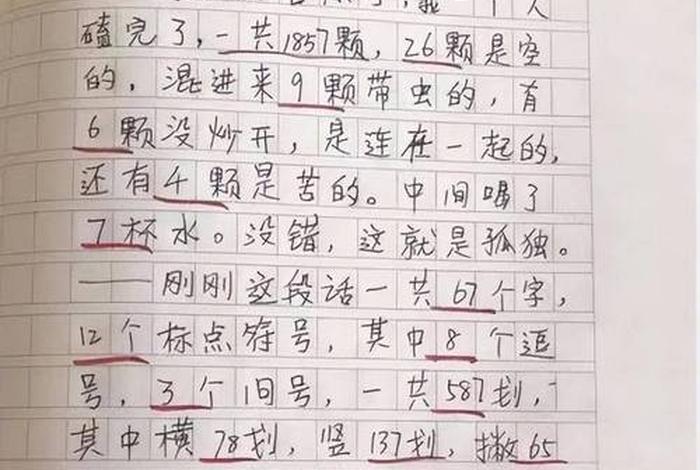 个人
磕完了，一共1857颗，26颗是空
的，混进来9颗带虫的，有
6颗没炒开，是连在一起的，
还有4颗是苦的。中间喝了
7杯水。没错，这就是孤独。
——刚刚这段话一共67个字，
12个标点符号，其中8个逗
号，3个旧号，一共587划，
其中横78划，竖137划，撇65